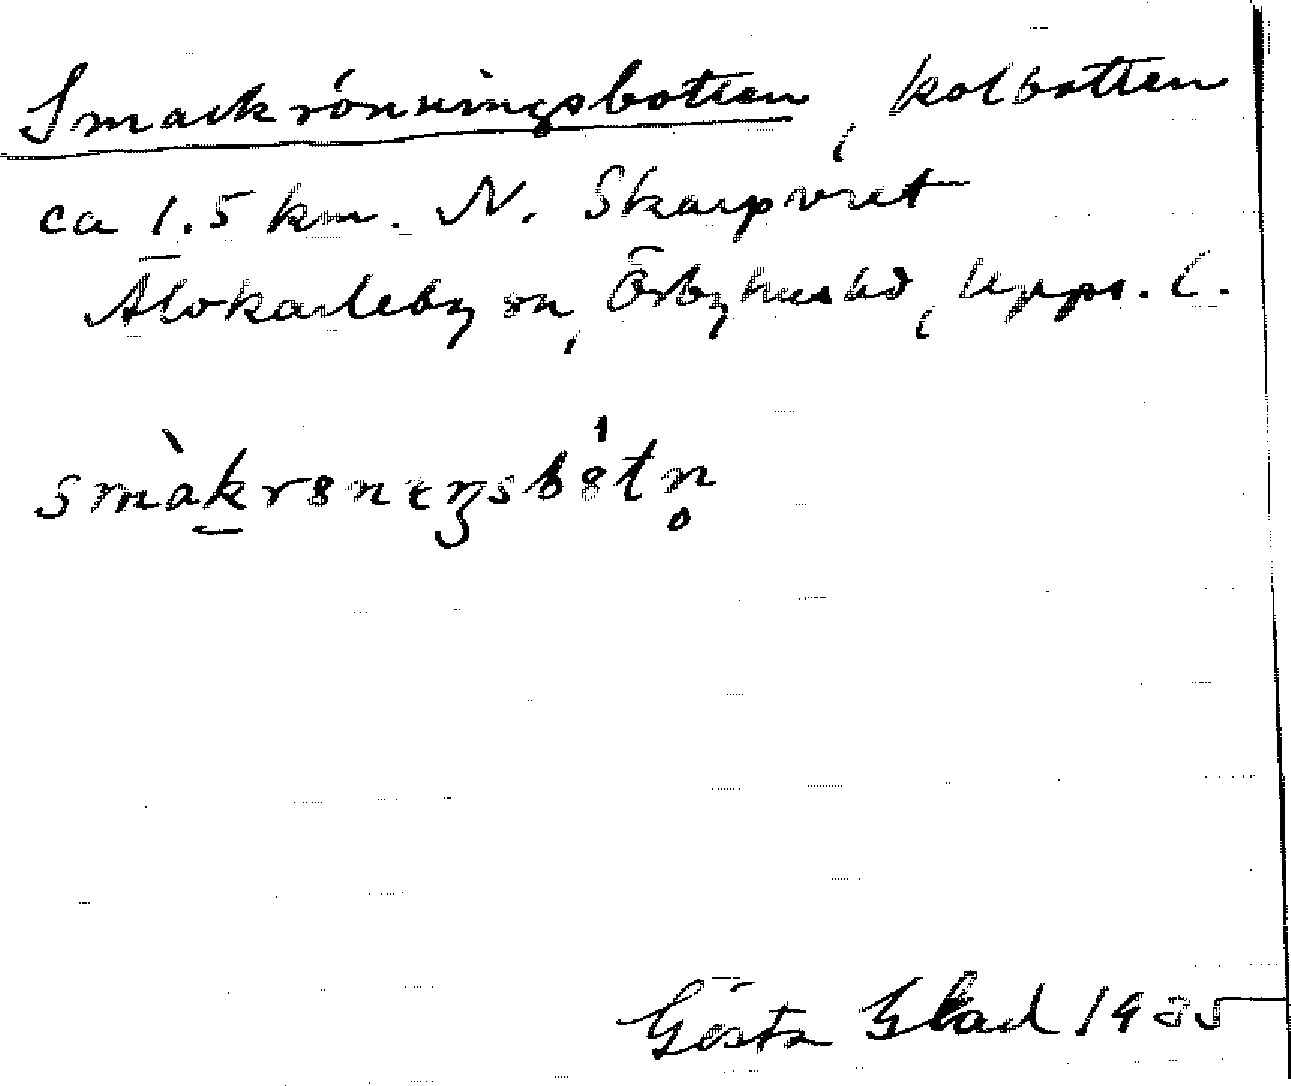 Smackrönningsbotten, kolbotten
ca 1.5 km. N. Skarpvret
Älvkarleby sn, Örbyhus hd, Upps. l.
smàkrönıŋsbötn̥
Gösta Blad 1935